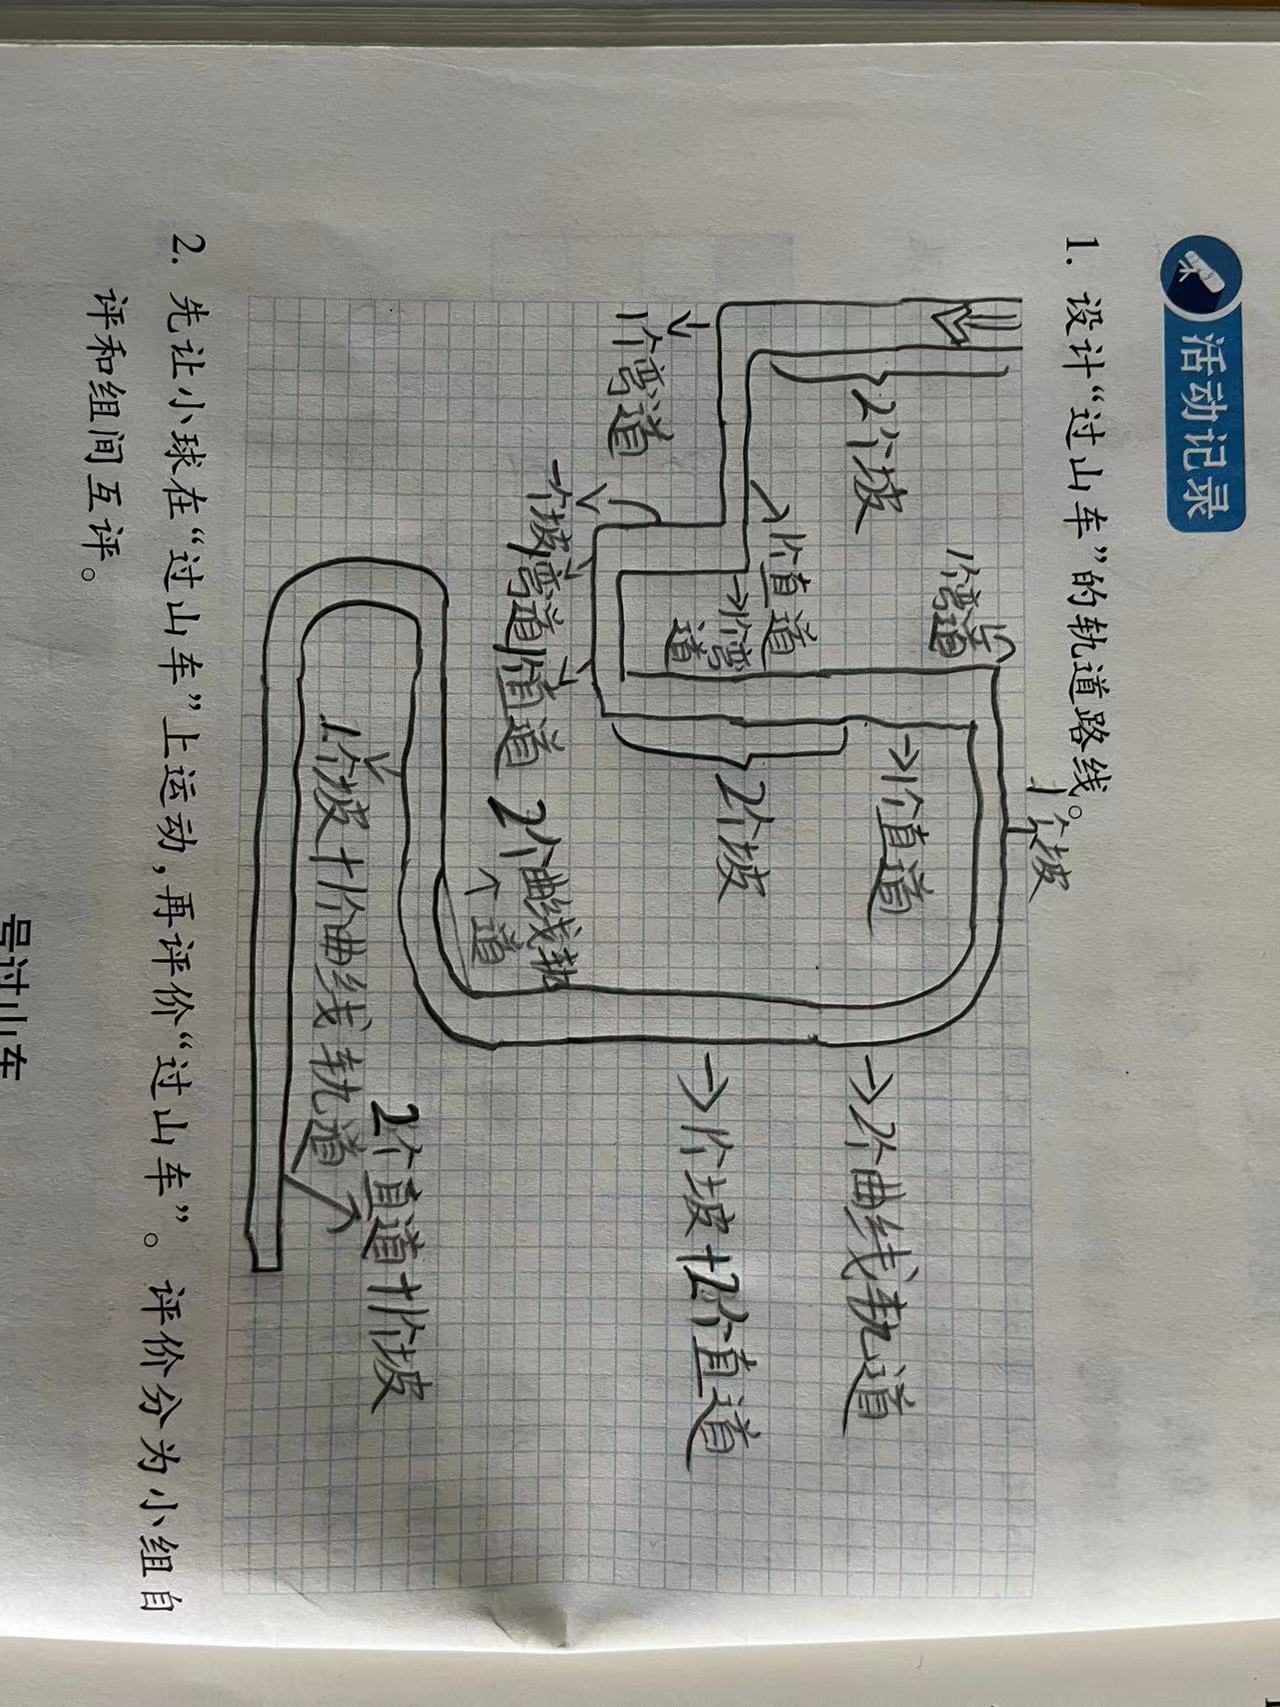 活动记录
1. 设计“过山车”的轨道路线。
1个坡
1个弯道
2个坡
1个直道
→2个曲线轨道
1个直道
→1个弯道
2个坡
→1个坡+2个直道
1个弯道
一个坡
弯道
1个直道
2个曲线轨道
1个坡+1个曲线轨道
2个直道+1个坡
2. 先让小球在“过山车”上运动，再评价“过山车”。评价分为小组自
评和组间互评。
号过山车